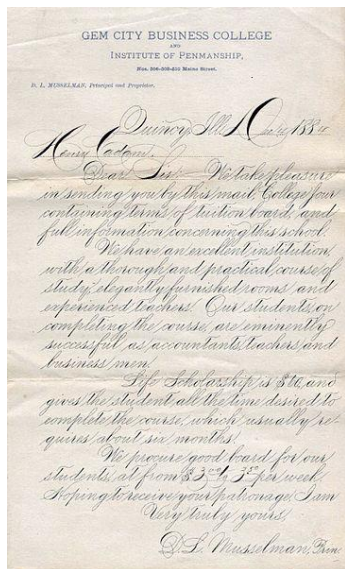 GEM CITY BUSINESS COLLEGE
AND
INSTITUTE OF PENMANSHIP,
Maine Street.
D. L. MUSSELMAN, Principal and Proprietor.
Quincy, Ill. 188
Henry
Dear Sir: We take pleasure
in sending you by this mail, College Jour
containing terms of tuition board, and
full information concerning this school.
We have an excellent institution,
with a thorough and practical course of
study, elegantly furnished rooms and
experienced teachers. Our students, on
completing the course, are eminently
successful as accountants, teachers, and
business men.
Life Scholarship is and
gives the student all the time desired to
complete the course, which usually re-
quires about six months.
We procure good board for our
students, at from per week.
Hoping to receive your patronage, I am
Very truly yours,
D. L. Musselman, Prin